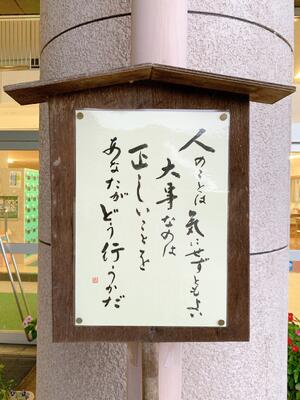 人のことは気にせずともよい
大事なのは
正しいことを
あなたがどう行うかだ